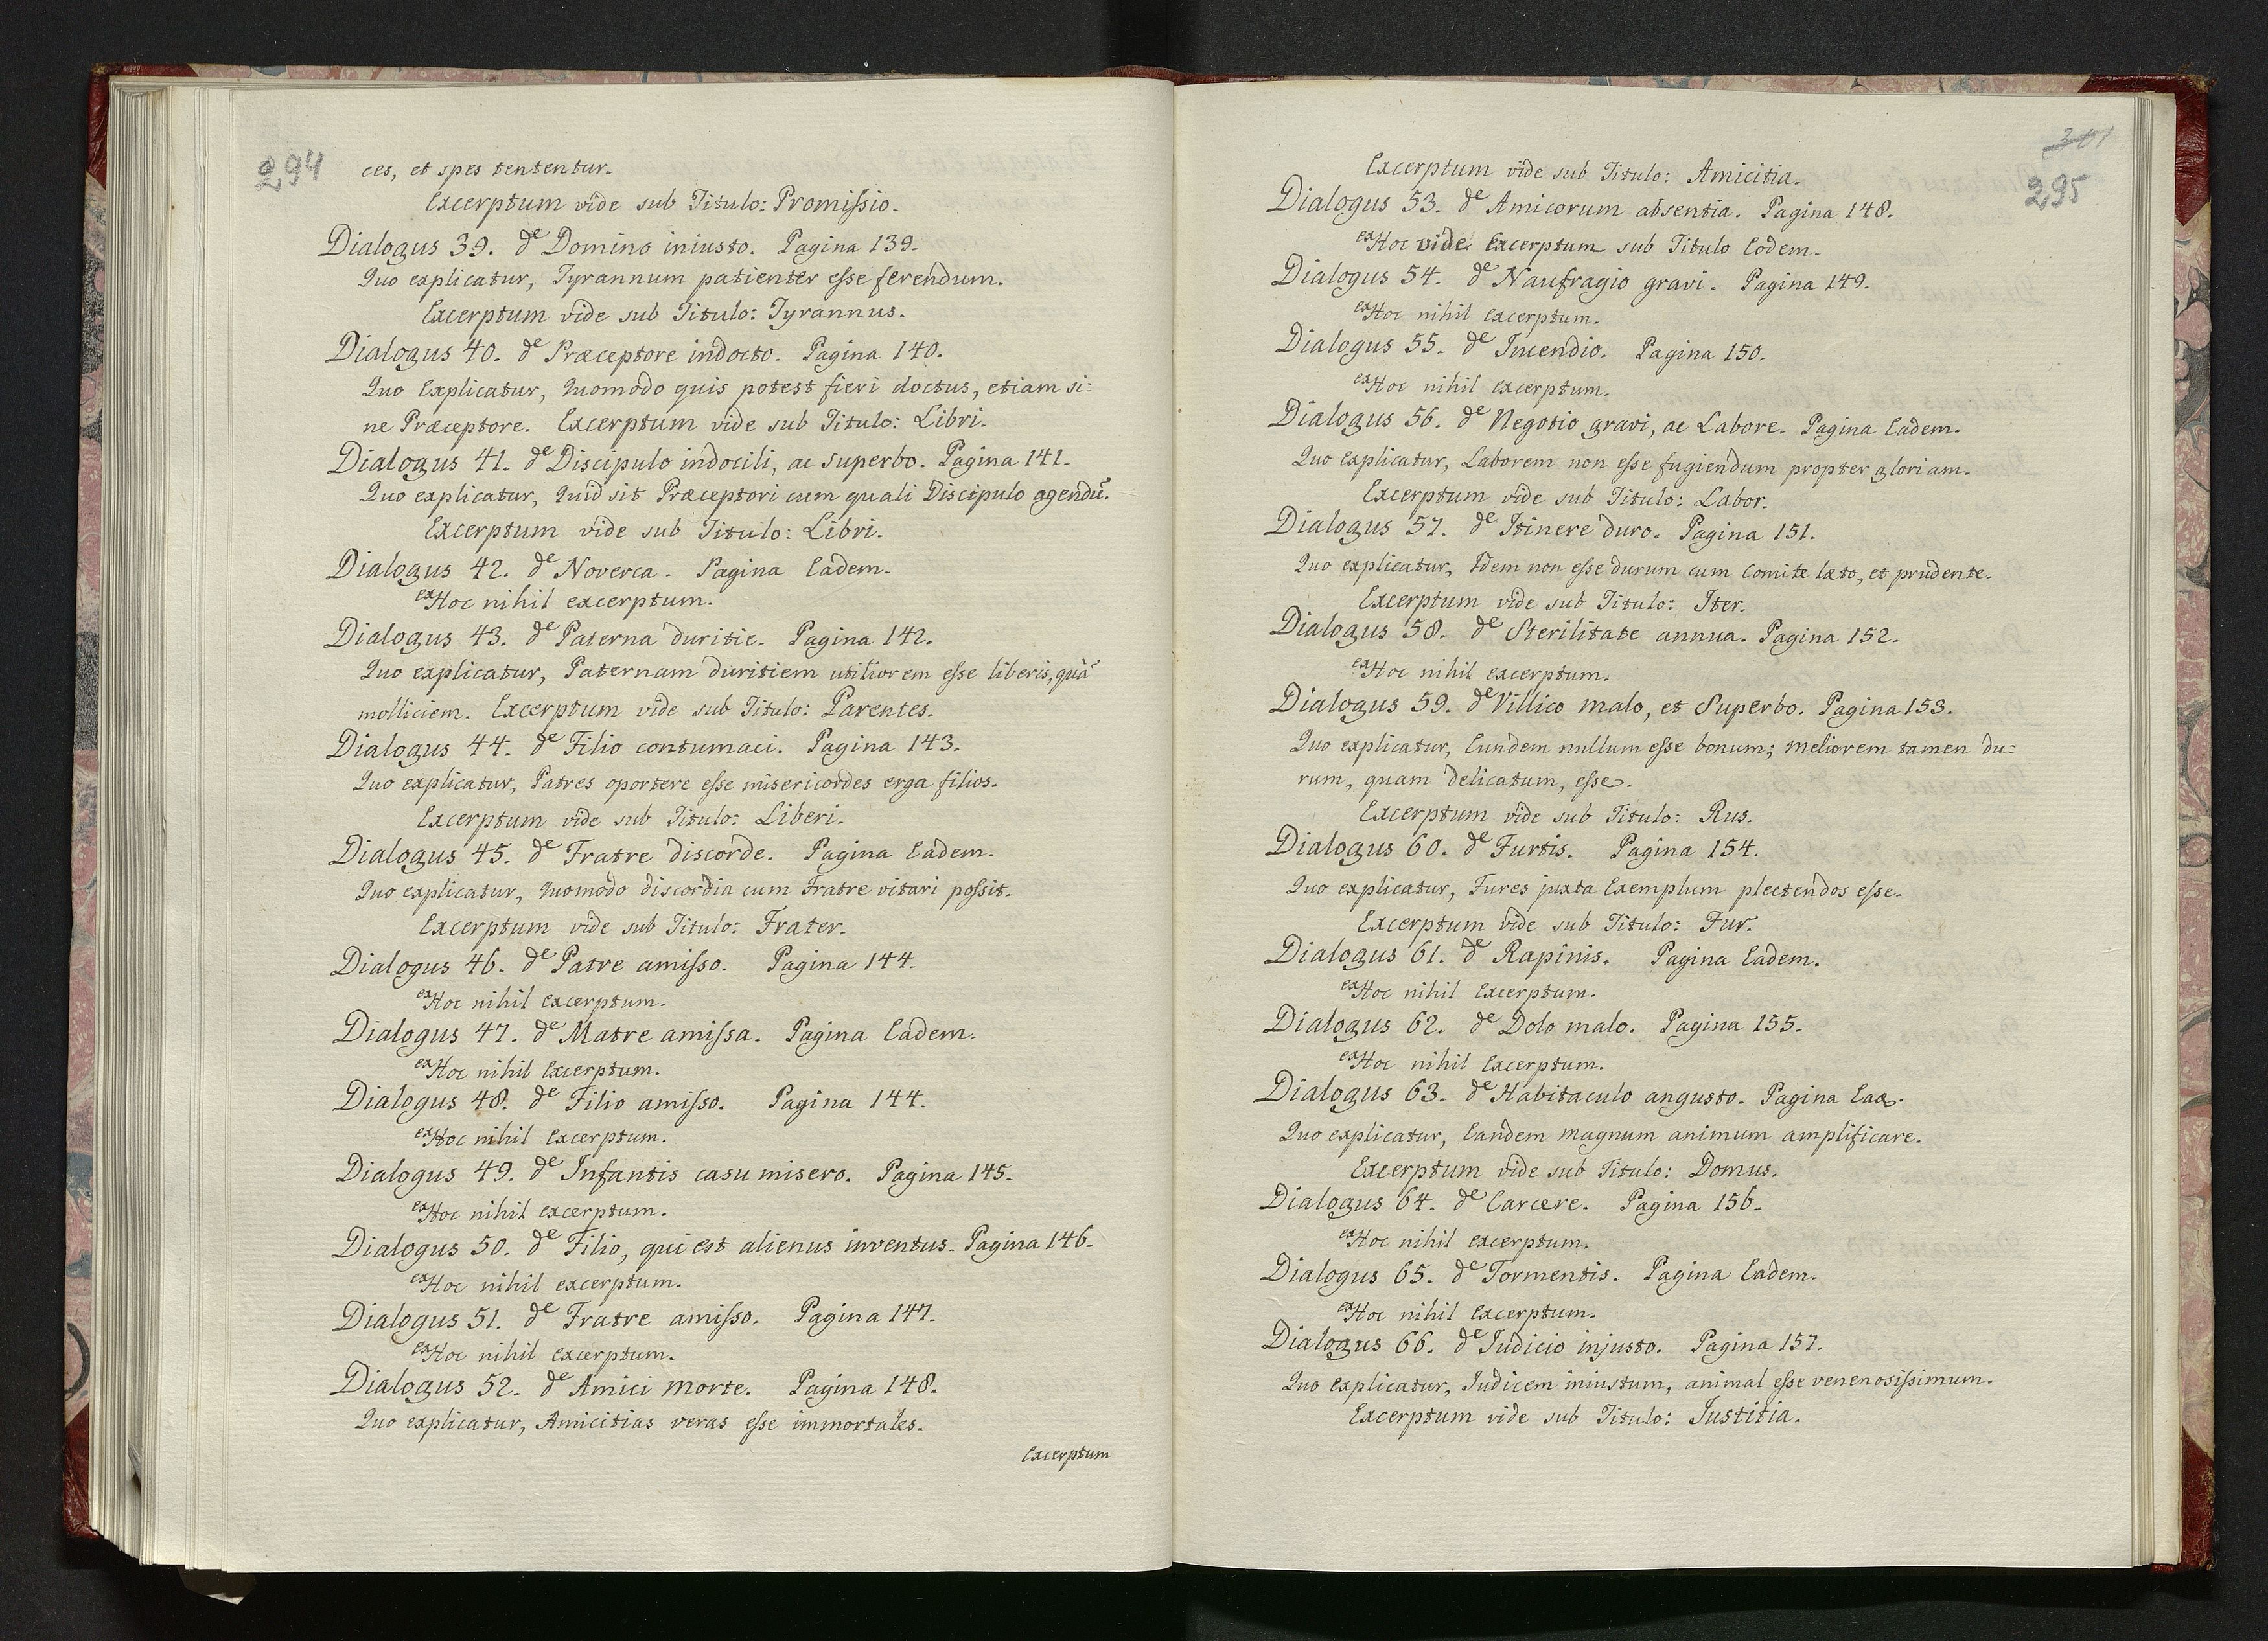 294
ces, et spes tententur.
Excerptum vide sub Titulo: Promiſsio.
Dialogus 39. de Domino iniusto. Pagina 139.
Quo explicatur, Tyrannum patienter eſse ferendum.
Excerptum vide sub Titulo: Tyrannus.
Dialogus 40. de Præceptore indocto. Pagina 140.
Quo Explicatur, Quomodo quis potest fieri doctus, etiam si=
ne Præceptore. Excerptum vide sub Titulo: Libri.
Dialogus 41. de Discipulo indocili, ac superbo. Pagina 141.
Quo explicatur, Quid sit Præceptori cum quali Discipulo agendū.
Excerptum vide sub Titulo: Libri.
Dialogus 42. de Noverca. Pagina Eadem.
ex Hoc nihil excerptum.
Dialogus 43. de Paterna duritie. Pagina 142.
Quo explicatur, Paternam duritiem utiliorem eſse liberis, quā
molliciem. Excerptum vide sub Titulo: Parentes.
Dialogus 44. de Filio contumaci. Pagina 143.
Quo explicatur, Patres oportere eſse misericordes erga filios.
Excerptum vide sub Titulo: Liberi.
Dialogus 45. de Fratre discorde. Pagina Eadem.
Quo explicatur, Quomodo discordia cum Fratre vitari poſsit.
Excerptum vide sub Titulo: Frater.
Dialogus 46. de Patre amiſso. Pagina 144.
ex Hoc nihil Excerptum.
Dialogus 47. de Matre amiſsa. Pagina Eadem.
ex Hoc nihil Excerptum.
Dialogus 48. de Filio amiſso. Pagina 144.
ex Hoc nihil Excerptum.
Dialogus 49. de Infantis casu misero. Pagina 145.
ex Hoc nihil excerptum.
Dialogus 50. de Filio, qui est alienus inventus. Pagina 146.
ex Hoc nihil excerptum.
Dialogus 51. de Fratre amiſso. Pagina 147.
ex Hoc nihil Excerptum.
Dialogus 52. de Amici Morte. Pagina 148.
Quo explicatur, Amicitias veras eſse immortales.
Excerptum
301
295
Excerptum vide sub Titulo: Amicitia.
Dialogus 53. de Amicorum absentia. Pagina 148.
ex Hoc vide Excerptum sub Titulo Eodem.
Dialogus 54. de Naufragio gravi. Pagina 149.
ex Hoc nihil Excerptum.
Dialogus 55. de Incendio. Pagina 150.
ex Hoc nihil excerptum.
Dialogus 56. de Negotio gravi, ac Labore. Pagina Eadem.
Quo explicatur, Laborem non eſse fugiendum propter gloriam.
Excerptum vide sub Titulo: Labor.
Dialogus 57. de Itinere duro. Pagina 151.
Quo explicatur, Idem non eſse durum cum Comite læto, et prudente.
Excerptum vide sub Titulo: Iter.
Dialogus 58. de Sterilitate annua. Pagina 152.
ex Hoc nihil excerptum.
Dialogus 59. de Villico malo, et Superbo. Pagina 153.
Quo explicatur, Eundem nullum eſse bonum; Meliorem tamen du=
rum, quam delicatum, eſse.
Excerptum vide sub Titulo: Rus.
Dialogus 60. de Furtis. Pagina 154.
Quo explicatur, Fures juxta Exemplum plectendos eſse.
Excerptum vide sub Titulo: Fur.
Dialogus 61. de Rapinis. Pagina Eadem.
ex Hoc nihil Excerptum.
Dialogus 62. de Dolo malo. Pagina 155.
ex Hoc nihil Excerptum.
Dialogus 63. de Habitaculo angusto. Pagina
Quo explicatur, Eandem Magnum animum amplificare.
Excerptum vide sub Titulo: Domus.
Dialogus 64. de Carcere. Pagina 156.
ex Hoc nihil excerptum.
Dialogus 65. de Tormentis. Pagina Eadem.
ex Hoc nihil Excerptum.
Dialogus 66. de Iudicio injusto. Pagina 157.
Quo explicatur, Iudicem iniustum, animal eſse venenosiſsimum.
Excerptum vide sub Titulo: Iustitia.